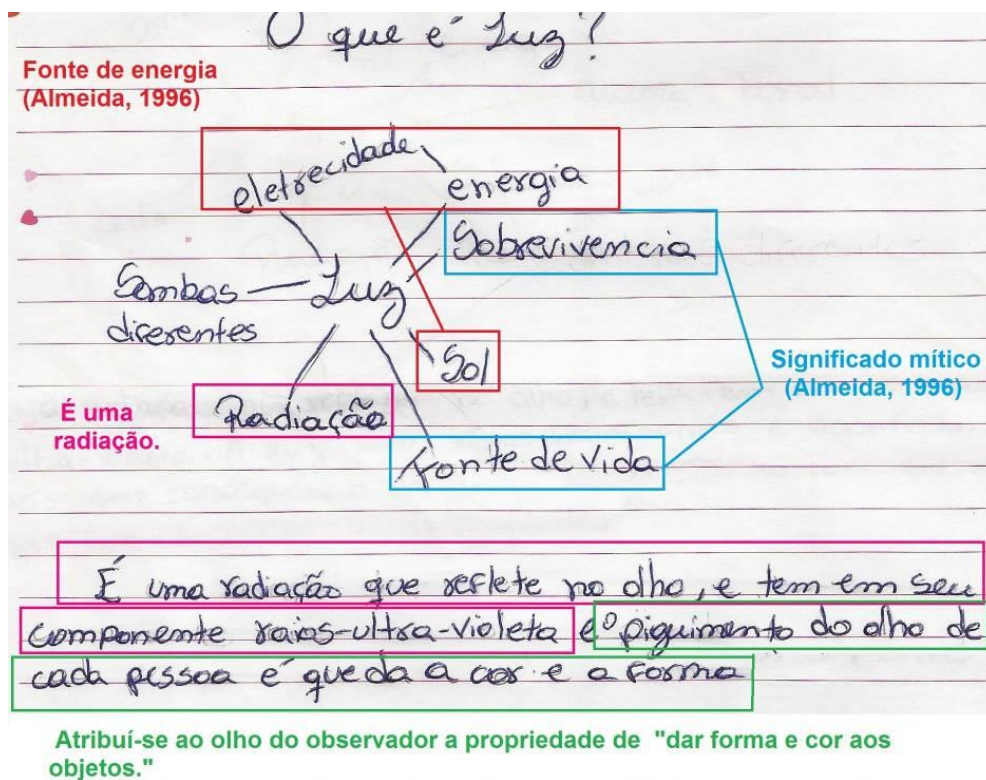 O que é Luz?
Fonte de energia
(Almeida, 1996)
eletrecidade
energia
Sobrevivencia
Sombas — Luz
diferentes
Sol
Significado mítico
(Almeida, 1996)
É uma
radiação.
Radiação
Fonte de vida
É uma radiação que reflete no olho, e tem em seu
componente raios-ultra-violeta e o piguimento do olho de
cada pessoa é que da a cor e a forma
Atribuí-se ao olho do observador a propriedade de "dar forma e cor aos
objetos."